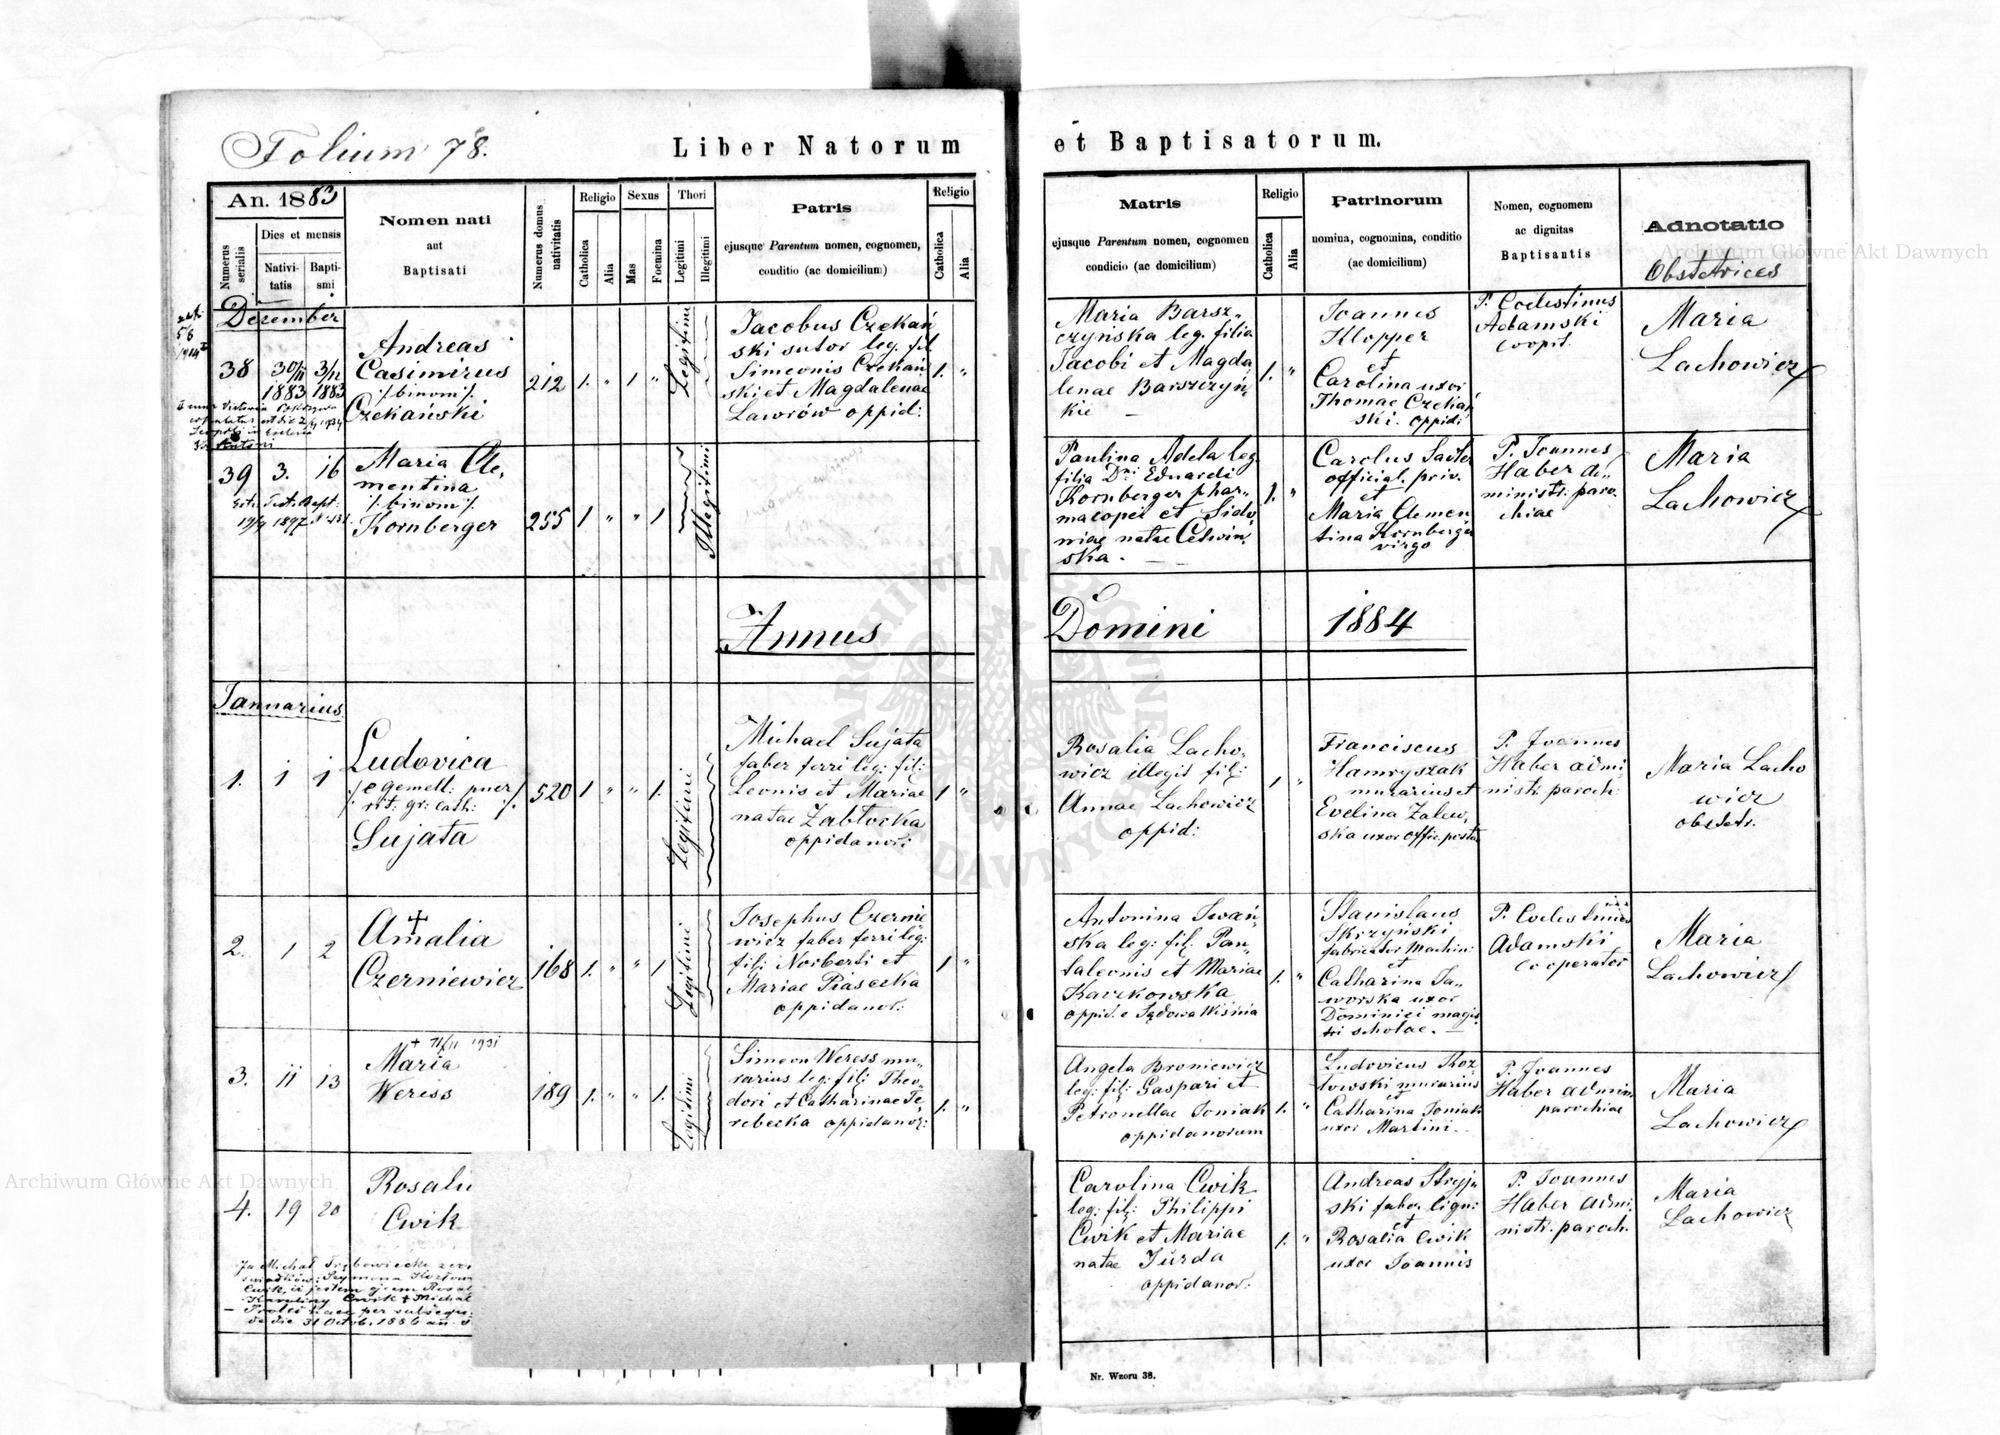 Folium 78.
Liber Natorum
et Baptisatorum.
An. 1883
Numerus serialis
Dies et mensis
Nativitatis
Baptismi
Nomen nati
aut
Baptisati
Numerus domus nativitatis
Religio
Catholica
Alia
Sexus
Mas
Foemina
Thori
Legitimi
Illegitimi
Patris
ejusque Parentum nomen, cognomen,
conditio (ac domicilium)
Religio
Catholica
Alia
Matris
ejusque Parentum nomen, cognomen
condicio (ac domicilium)
Religio
Catholica
Alia
Patrinorum
nomina, cognomina, conditio
(ac domicilium)
Nomen, cognomem
ac dignitas
Baptisantis
Adnotatio
Obstetrices
December
38
30/11
1883
3/12
1883
Andreas
Casimirus
/:binom:/
Czekański
212
1.
"
1
"
Legitimi
Jacobus Czekań
ski sutor leg. fil.
Simeonis Czekań
ski et Magdalenae
Lawrów oppid:
1.
"
Maria Barsz„
czyńska leg. filia
Jacobi et Magda
lenae Barszczyń„
kie —
1.
"
Joannes
Klopper
et
Carolina uxor
Thomae Czekań
ski. oppidi
P. Coelestinus
Adamski
coopit.
Maria
Lachowicz
39
3.
16
Maria Cle„
mentina
/:binom:/
Kornberger
255
1
"
"
1
Illegitimi
19/9 1897
Paulina Adela leg.
filia Dni Eduardi
Kornberger phar„
macopei et Sido„
niae natae Celwin„
ska. —
1.
"
Carolus
official. priv.
et
Maria Clemen
tina Kornberger
virgo
P. Joannes
Haber ad„
ministr. paro„
chiae
Maria
Lachowicz
Annus
Domini
1884
Januarius
1.
1
1
Ludovica
/:e gemell: puer/
rit. gr: cath: :/
Sujata
520
1
"
"
1.
Legitimi
Michael Sujata
faber ferri leg: fil:
Leonis et Mariae
natae Zabłocka
oppidanor:
1
"
Rosalia Lacho„
wicz illegit fil:
Annae Lachowicz
oppid:
1
"
Franciscus
Hamryszak
murarius et
Evelina Zalew„
ska uxor offic. posta
P. Joannes
Haber admi
nistr. paroch:
Maria Lacho
wicz
obstetr.
2.
1
2
Amalia
Czerniewicz
168
1.
"
"
1
Legitimi
Josephus Czernie
wicz faber ferri leg:
fil: Norberti et
Mariae Piasecka
oppidanor:
1
"
Antonina Iwań„
ska leg: fil: Pan„
taleonis et Mariae
Karzkowska
oppid. e Sądowa Wisznia
1.
"
Stanislaus
Skrzyński
fabricator Machin:
et
Catharina Ja„
worska uxor
Dominici magis„
tri scholae. —
P. Coelestinus
Adamski
cooperator
Maria
Lachowicz
3.
11
13
1931
Maria
Weress
189
1.
"
"
1.
Legitimi
Simeon Weress mu„
rarius leg: fil: Theo„
dori et Catharinae Te„
rebecka oppidanor:
1.
"
Angela Broniewicz
leg: fil: Gaspari et
Petronellae Joniak
oppidanorum
1.
"
Ludovicus Koz„
łowski murarius
et
Catharina Joniak
uxor Martini.
P. Joannes
Haber admin.
parochiae
Maria
Lachowicz
4.
19
20
Rosali
Cwik
Carolina Cwik
leg: fil: Philippi
Cwik et Mariae
natae Jurda
oppidanor:
1.
"
Andreas Stryj„
ski faber lign:
et
Rosalia Cwik
uxor Joannis
P. Joannes
Haber admi„
nistr. paroch.
Maria
Lachowicz
Ja Michał
Cwik, iż jestem ojcem Rosal
Karoliny Cwik + Michał
de die 31 Octob. 1886
Nr. Wzoru 38.
Archiwum Główne Akt Dawnych
Archiwum Główne Akt Dawnych
ARCHIWUM GŁÓWNE
AKT DAWNYCH